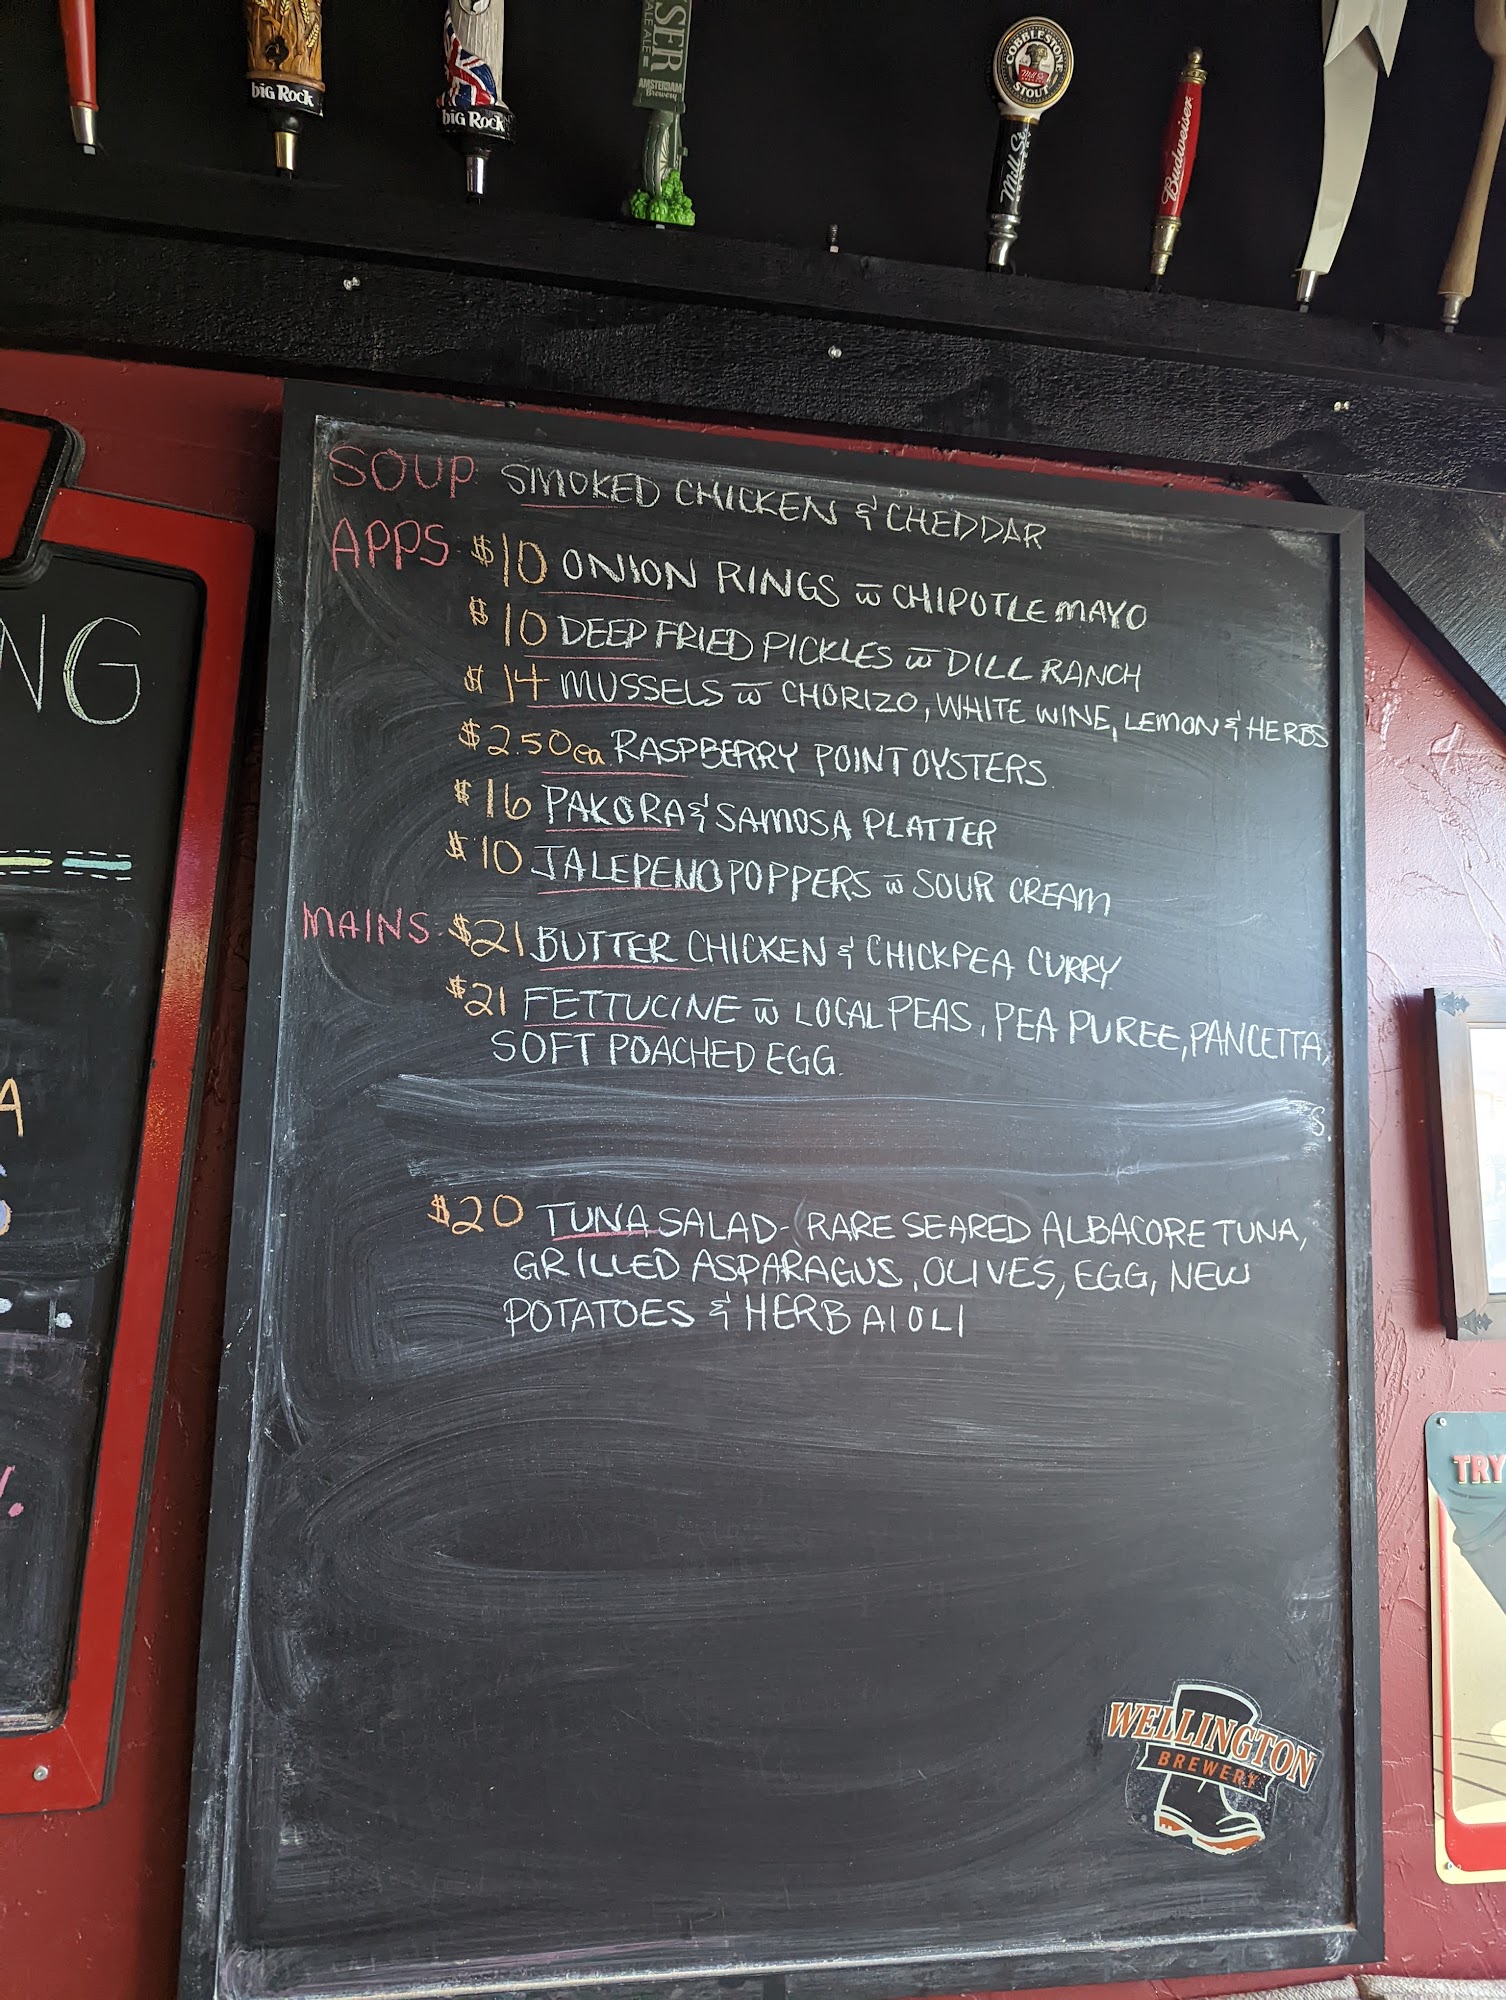 big Rock
big Rock
SER
ALE ALE
AMSTERDAM
Brewery
COBBLESTONE
Mill St.
STOUT
Mill St.
Budweiser
SOUP SMOKED CHICKEN & CHEDDAR
APPS $10 ONION RINGS w̅ CHIPOTLE MAYO
$10 DEEP FRIED PICKLES w̅ DILL RANCH
$14 MUSSELS w̅ CHORIZO, WHITE WINE, LEMON & HERBS
$2.50ea RASPBERRY POINT OYSTERS
$16 PAKORA & SAMOSA PLATTER
$10 JALEPENO POPPERS w̅ SOUR CREAM
MAINS $21 BUTTER CHICKEN & CHICKPEA CURRY
$21 FETTUCINE w̅ LOCAL PEAS, PEA PUREE, PANCETTA,
SOFT POACHED EGG.
S.
$20 TUNA SALAD - RARE SEARED ALBACORE TUNA,
GRILLED ASPARAGUS, OLIVES, EGG, NEW
POTATOES & HERB AIOLI
WELLINGTON
BREWERY
NG
A
TRY